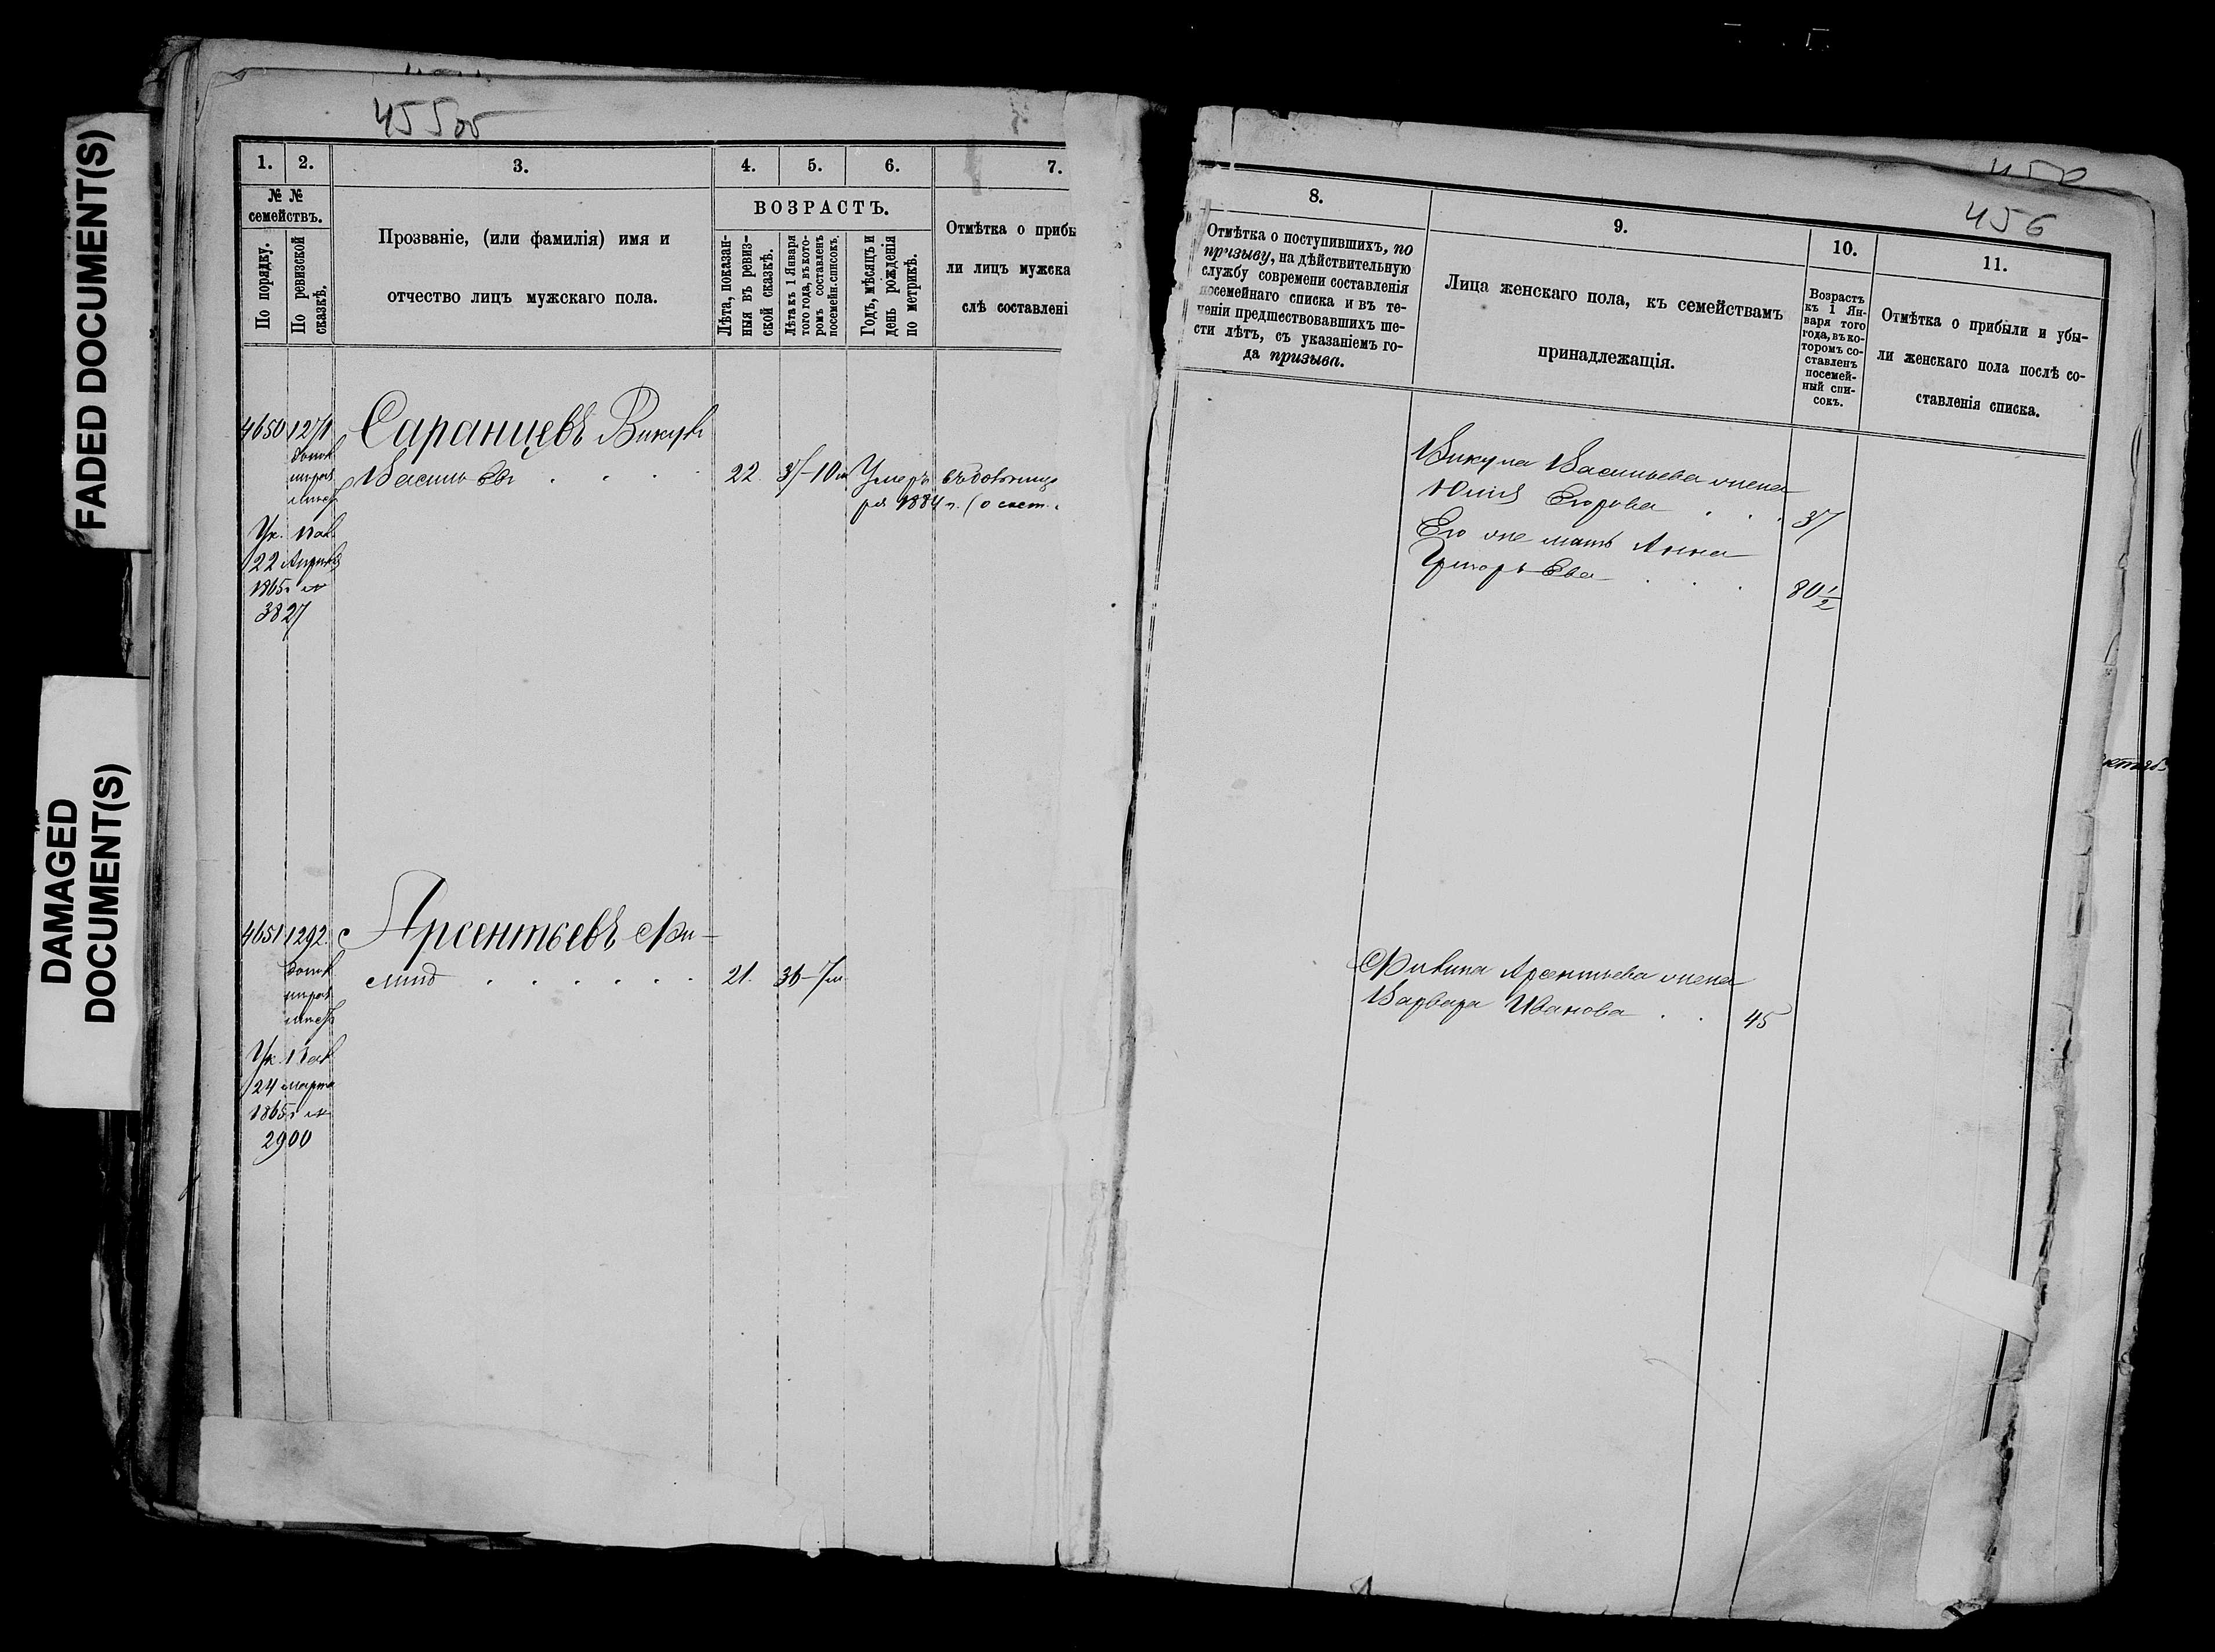 FADED DOCUMENT(S)
DAMAGED
DOCUMENT(S)
455об
1. 2. 3. 4. 5. 6. 7.
№ №
семействъ.
По порядку.
По ревизской
сказкѣ.
Прозваніе, (или фамилія) имя и
отчество лицъ мужскаго пола.
ВОЗРАСТЪ.
Лѣта, показан-
ныя въ ревиз-
ской сказкѣ.
Лѣта къ 1 Января
того года, въ кото-
ромъ составленъ
посемейн. списокъ.
Годъ, мѣсяцъ и
день рожденія
по метрикѣ.
Отмѣтка о прибы
ли лицъ мужска
слѣ составлені
4650 Саранцевъ Викулъ
Васильевъ . . . . 22. 37-10м Умеръ
1884 г. (о сост.
Ук.
22 Апрѣля
1865г №
3827
4651 1292. Арсентьевъ Фи-
21. 36-7м
Ук.
24 марта
1865г №
2900
456
8. 9. 10. 11.
Отмѣтка о поступившихъ, по
призыву, на дѣйствительную
службу современи составленія
посемейнаго списка и въ те-
ченіи предшествовавшихъ ше-
сти лѣтъ, съ указаніемъ го-
да призыва.
Лица женскаго пола, къ семействамъ
принадлежащія.
Возрастъ
къ 1 Ян-
варя того
года, въ ко-
торомъ со-
ставленъ
посемей-
ный спи-
сокъ.
Отмѣтка о прибыли и убы-
ли женскаго пола послѣ со-
ставленія списка.
Викула Васильева жена
Юлія Егорова . . . 37
Его же мать Анна
Григорьева . . . 80 1/2
Арсентьева жена
Варвара Иванова . . 45